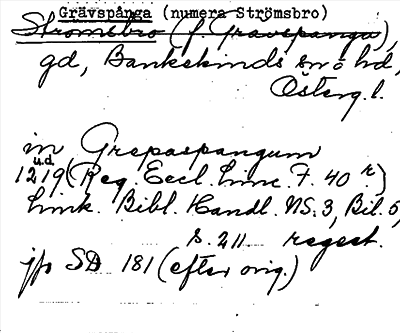 Grävspånga (numera Strömsbro)
Strömsbro (f. Grävspånga),
gd, Bankekinds sn o hd,
Österg. l.
in Grepaspangum
u.d.
1219 (Reg. Eccl. Linc. F. 40 r)
Link. Bibl. Handl. NS. 3, Bil. 5,
s. 211 regest.
jfr SD 181 (efter orig.)